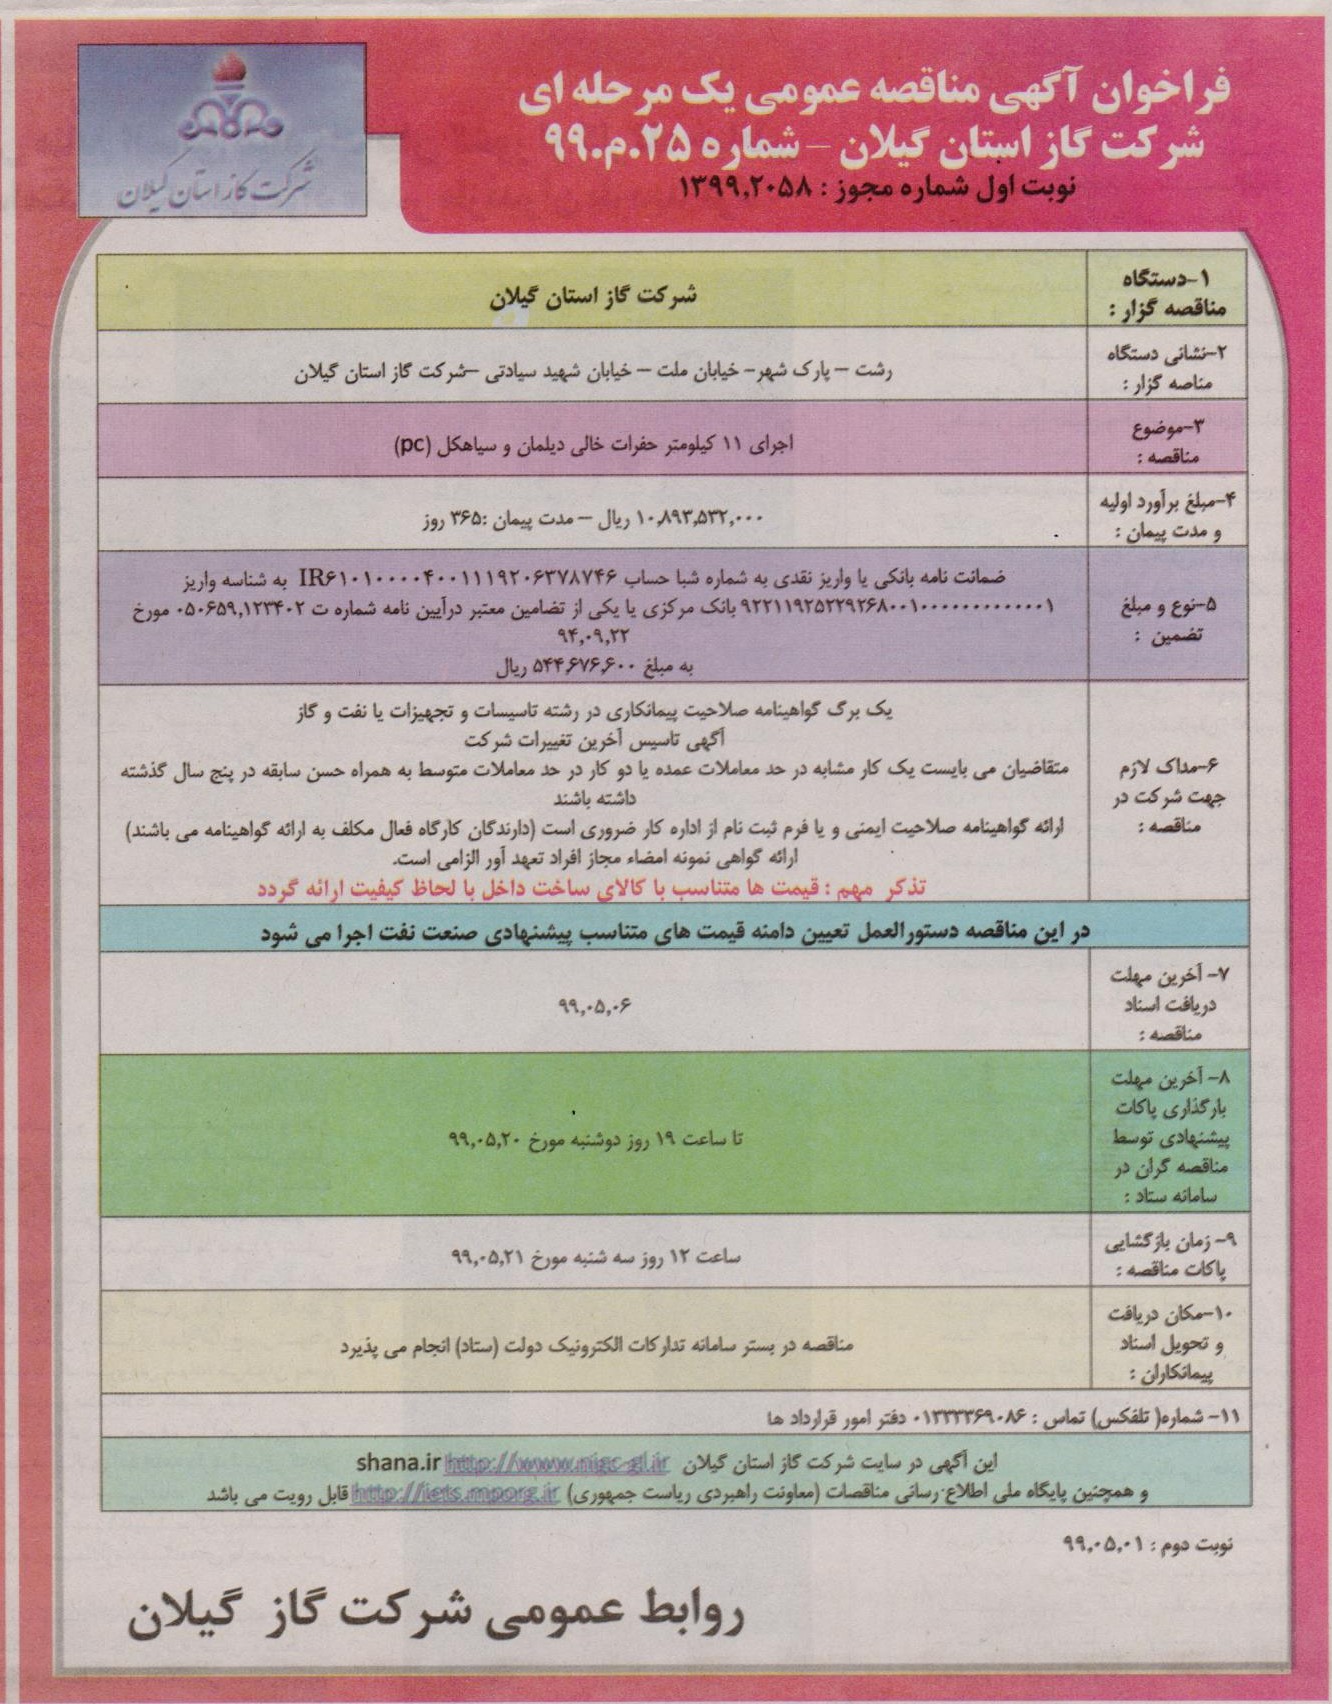 فراخوان آگهی مناقصه عمومی یک مرحله ای
شرکت گاز استان گیلان – شماره ۲۵.م.۹۹
نوبت اول شماره مجوز : ۱۳۹۹,۲۰۵۸
شرکت گاز استان گیلان
۱-دستگاه
مناقصه گزار :
شرکت گاز استان گیلان
۲-نشانی دستگاه
مناصه گزار :
رشت – پارک شهر- خیابان ملت – خیابان شهید سیادتی –شرکت گاز استان گیلان
۳-موضوع
مناقصه :
اجرای ۱۱ کیلومتر حفرات خالی دیلمان و سیاهکل (pc)
۴-مبلغ برآورد اولیه
و مدت پیمان :
۱۰,۸۹۳,۵۳۲,۰۰۰ ریال – مدت پیمان :۳۶۵ روز
۵-نوع و مبلغ
تضمین :
ضمانت نامه بانکی یا واریز نقدی به شماره شبا حساب IR۶۱۰۱۰۰۰۰۴۰۰۱۱۱۹۲۰۶۳۷۸۷۴۶ به شناسه واریز
۹۲۲۱۱۹۲۵۲۲۹۲۶۸۰۰۱۰۰۰۰۰۰۰۰۰۰۰۰۱ بانک مرکزی یا یکی از تضامین معتبر درآیین نامه شماره ت ۰۵۰۶۵۹,۱۲۳۴۰۲ مورخ
۹۴,۰۹,۲۲
به مبلغ ۵۴۴,۶۷۶,۶۰۰ ریال
۶-مداک لازم
جهت شرکت در
مناقصه :
یک برگ گواهینامه صلاحیت پیمانکاری در رشته تاسیسات و تجهیزات یا نفت و گاز
آگهی تاسیس آخرین تغییرات شرکت
متقاضیان می بایست یک کار مشابه در حد معاملات عمده یا دو کار در حد معاملات متوسط به همراه حسن سابقه در پنج سال گذشته
داشته باشند
ارائه گواهینامه صلاحیت ایمنی و یا فرم ثبت نام از اداره کار ضروری است (دارندگان کارگاه فعال مکلف به ارائه گواهینامه می باشند)
ارائه گواهی نمونه امضاء مجاز افراد تعهد آور الزامی است.
تذکر مهم : قیمت ها متناسب با کالای ساخت داخل با لحاظ کیفیت ارائه گردد
در این مناقصه دستورالعمل تعیین دامنه قیمت های متناسب پیشنهادی صنعت نفت اجرا می شود
۷- آخرین مهلت
دریافت اسناد
مناقصه :
۹۹,۰۵,۰۶
۸- آخرین مهلت
بارگذاری پاکات
پیشنهادی توسط
مناقصه گران در
سامانه ستاد :
تا ساعت ۱۹ روز دوشنبه مورخ ۹۹,۰۵,۲۰
۹- زمان بازگشایی
پاکات مناقصه :
ساعت ۱۲ روز سه شنبه مورخ ۹۹,۰۵,۲۱
۱۰-مکان دریافت
و تحویل اسناد
پیمانکاران :
مناقصه در بستر سامانه تدارکات الکترونیک دولت (ستاد) انجام می پذیرد
۱۱- شماره( تلفکس) تماس : ۰۱۳۳۳۳۶۹۰۸۶ دفتر امور قرارداد ها
این آگهی در سایت شرکت گاز استان گیلان http://www.nigc-gl.ir shana.ir
و همچنین پایگاه ملی اطلاع رسانی مناقصات (معاونت راهبردی ریاست جمهوری) http://iets.mporg.ir قابل رویت می باشد
نوبت دوم : ۹۹,۰۵,۰۱
روابط عمومی شرکت گاز گیلان